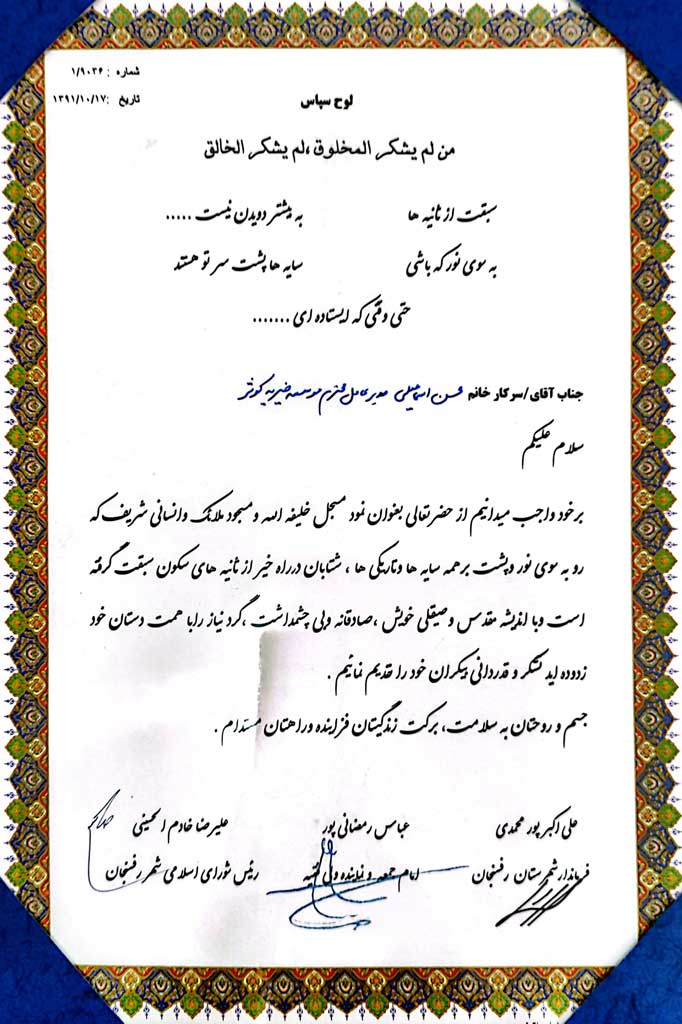 شماره : ۱/۹۰۳۴
تاریخ :۱۳۹۱/۱۰/۱۷
لوح سپاس
من لم یشکر المخلوق ،لم یشکر الخالق
سبقت از ثانیه ها به بیشتر دویدن نیست .....
به سوی نور که باشی سایه ها پشت سر تو هستند
حتی وقتی که ایستاده ای .......
جناب آقای /سرکار خانم محسن اسماعیلی مدیرعامل محترم موسسه خیریه کوثر
سلام علیکم
برخود واجب میدانیم از حضرتعالی بعنوان نمود مسجل خلیفه الله و مسجود ملائک وانسانی شریف که
رو به سوی نور وپشت برهمه سایه ها وتاریکی ها ، شتابان درراه خیر از ثانیه های سکون سبقت گرفته
است وبا اندیشه مقدس و صیقلی خویش ،صادقانه وبی چشمداشت ،گرد نیاز رابا همت دستان خود
زدوده اید تشکر و قدردانی بیکران خود را تقدیم نمائیم .
جسم و روحتان به سلامت، برکت زندگیتان فزاینده وراهتان مستدام .
علی اکبر پور محمدی عباس رمضانی پور علیرضا خادم الحسینی
فرماندارشهرستان رفسنجان امام جمعه و نماینده ولی فقیه رئیس شورای اسلامی شهر رفسنجان